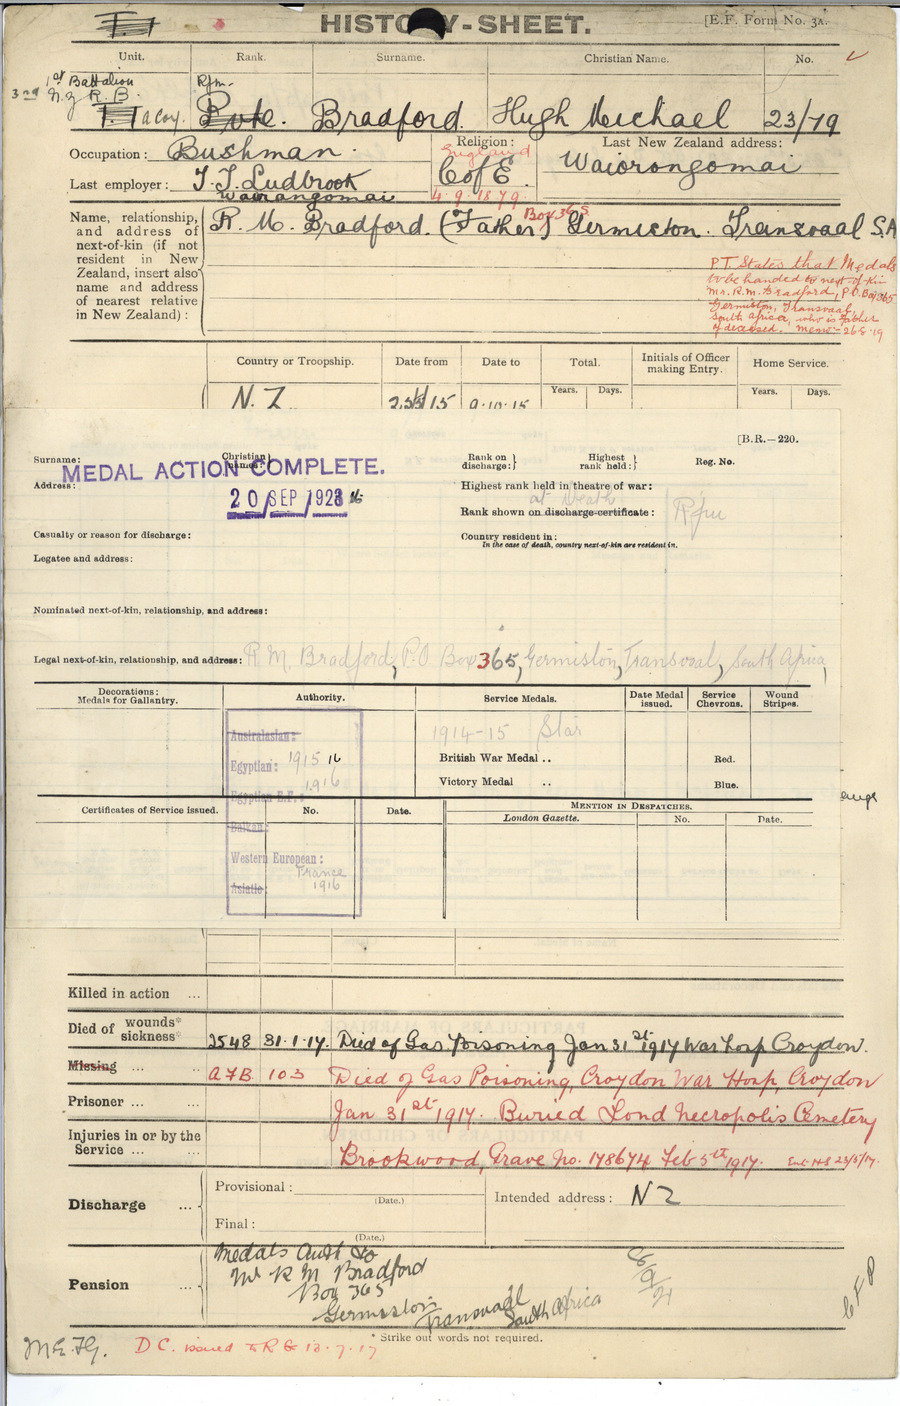 HISTORY-SHEET.
[E.F. Form No. 3A.
Unit. Rank. Surname. Christian Name. No.
1st Battalion
3rd N.Z R.B. Rfm.
A Coy. Pvte. Bradford. Hugh Michael 23/79
Occupation: Bushman.
Last employer: T. J. Ludbrook
Wairangomai
Religion:
England
C of E
4.9.1879
Last New Zealand address:
Waiorongomai
Name, relationship, and address of next-of-kin (if not resident in New Zealand, insert also name and address of nearest relative in New Zealand):
Box 365
R. M. Bradford. (Father) Germiston. Transvaal S.A
P.T. States that Medals
to be handed to next-of-kin
Mr. R.M. Bradford, P.O. Box 365
Germiston, Transvaal,
South Africa, who is father
of deceased. Memo- 26.8.19
Country or Troopship. Date from Date to Total. Initials of Officer making Entry. Home Service.
Years. Days. Years. Days.
N.Z. 9.10.15
[B.R.—220.
Surname: Christian names: Rank on discharge: Highest rank held: Reg. No.
MEDAL ACTION COMPLETE.
Address: Highest rank held in theatre of war:
20 SEP 1923
at Death
Rank shown on discharge-certificate: Rfm
Casualty or reason for discharge: Country resident in:
In the case of death, country next-of-kin are resident in.
Legatee and address:
Nominated next-of-kin, relationship, and address:
Legal next-of-kin, relationship, and address: R M Bradford, P.O Box 365, Germiston, Transvaal, South Africa,
Decorations: Medals for Gallantry. Authority. Service Medals. Date Medal issued. Service Chevrons. Wound Stripes.
Australasian:
1914-15 Star
Egyptian: 1915 16
British War Medal .. Red.
Egyptian E.F.: 1916
Victory Medal .. Blue.
Certificates of Service issued. No. Date. Mention in Despatches.
London Gazette. No. Date.
Balkan:
Western European:
France
1916
Asiatic
Killed in action ...
Died of wounds* sickness* 2548 31.1.17. Died of Gas Poisoning Jan 31st 1917 War Hosp Croydon.
Missing ... ... AFB 103 Died of Gas Poisoning, Croydon War Hosp, Croydon
Prisoner ... ... Jan 31st 1917. Buried Lond Necropolis Cemetery
Injuries in or by the Service ... ... Brookwood, Grave No. 178674 Feb 5th 1917. Ent HS 23/5/17.
Discharge ... Provisional: (Date.) Intended address: NZ
Final: (Date.)
Pension ... Medals Auth to
Mr R M Bradford
Box 365
Germiston
Transvaal
South Africa
* Strike out words not required.
D.C. issued to R G 13.7.17